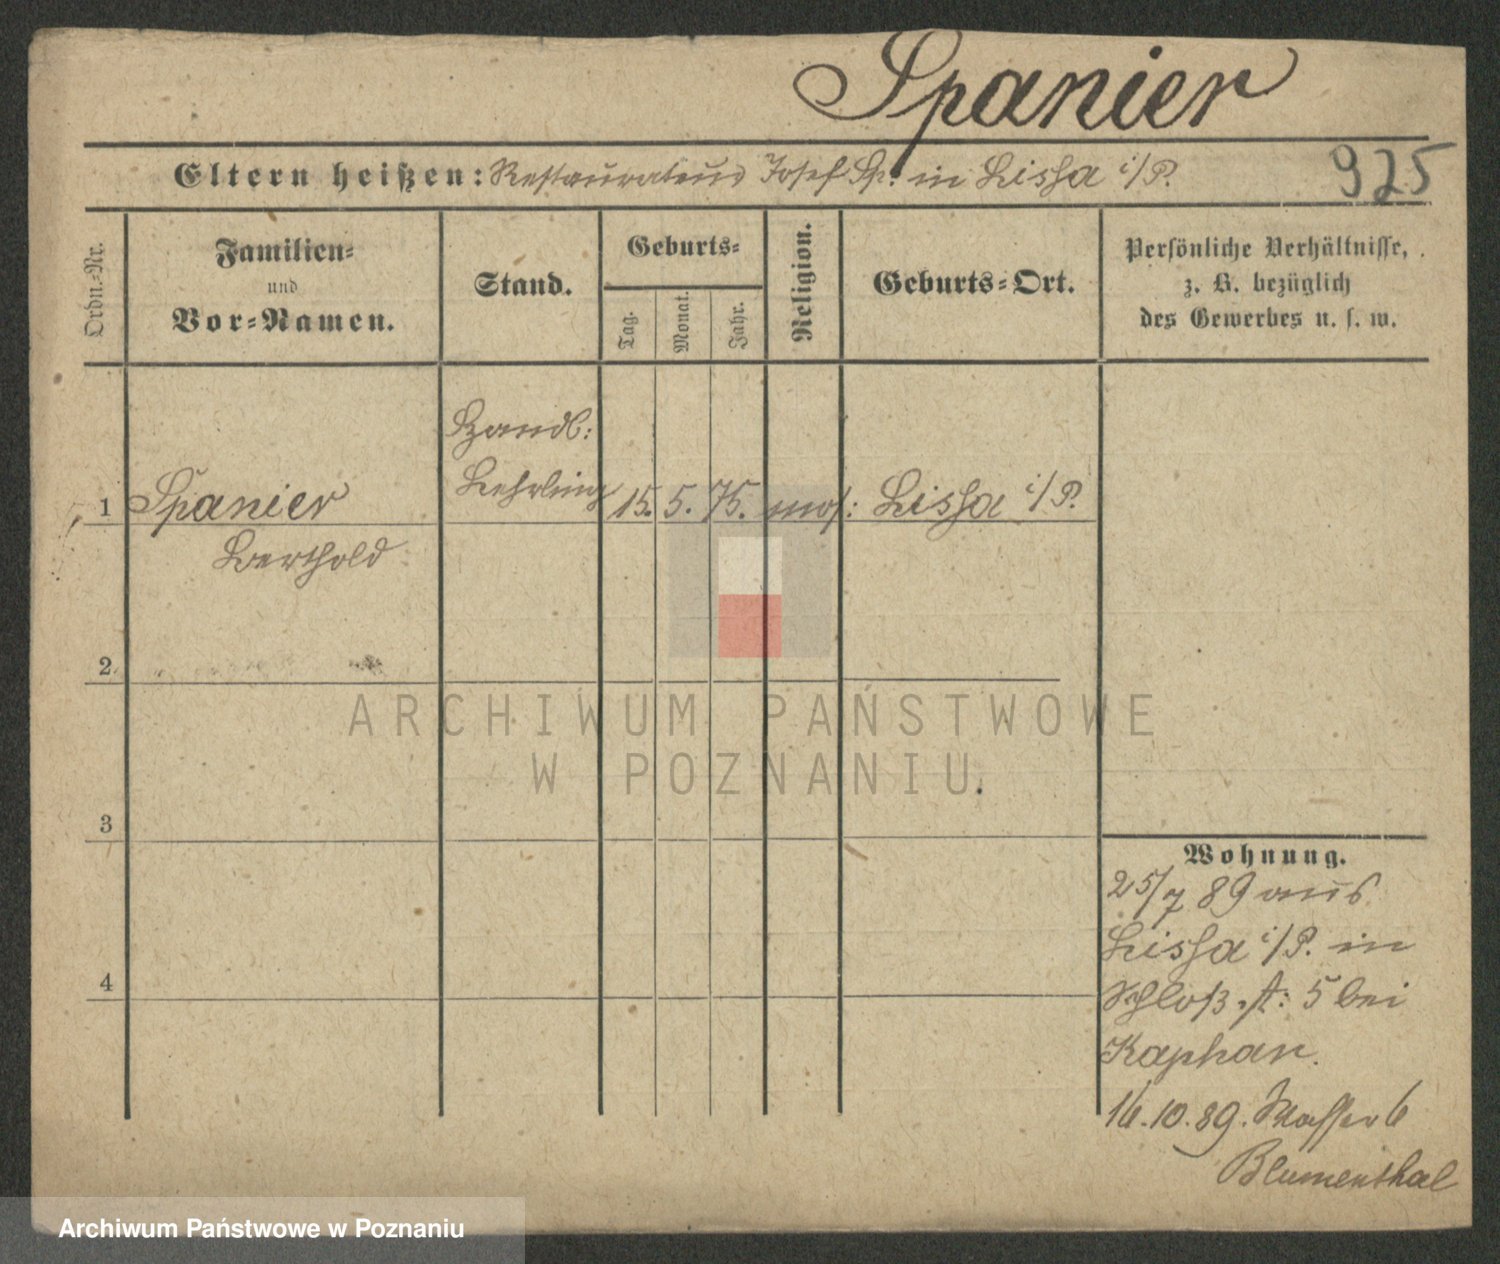 Spanier
Eltern heißen: Restaurateur Josef Sp. in Lissa i/P.
925
Ordn.-Nr.
Familien-
und
Vor-Namen.
Stand.
Geburts-
Tag.
Monat.
Jahr.
Religion.
Geburts-Ort.
Persönliche Verhältnisse,
z. B. bezüglich
des Gewerbes u. s. w.
Handl:
Lehrling
1 Spanier 15. 5. 75. mos: Lissa i/P.
Berthold
2
ARCHIWUM PAŃSTWOWE
W POZNANIU
3
Wohnung.
25/7 89 aus
Lissa i/P. in
Schloß.st: 5 bei
Kaphan.
4
16.10.89. Wasser 6
Blumenthal
Archiwum Państwowe w Poznaniu